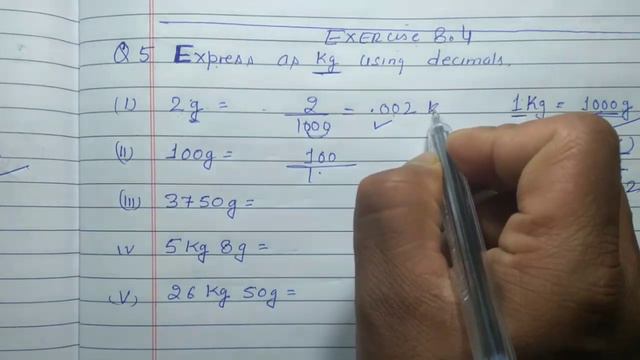 Exercise 8.4
Q 5 Express as kg using decimals.
(I) 2g = 2/1000 = .002 k 1Kg = 1000g
(II) 100g = 100/1.
(III) 3750g =
IV 5Kg 8g =
(V) 26 Kg 50g =